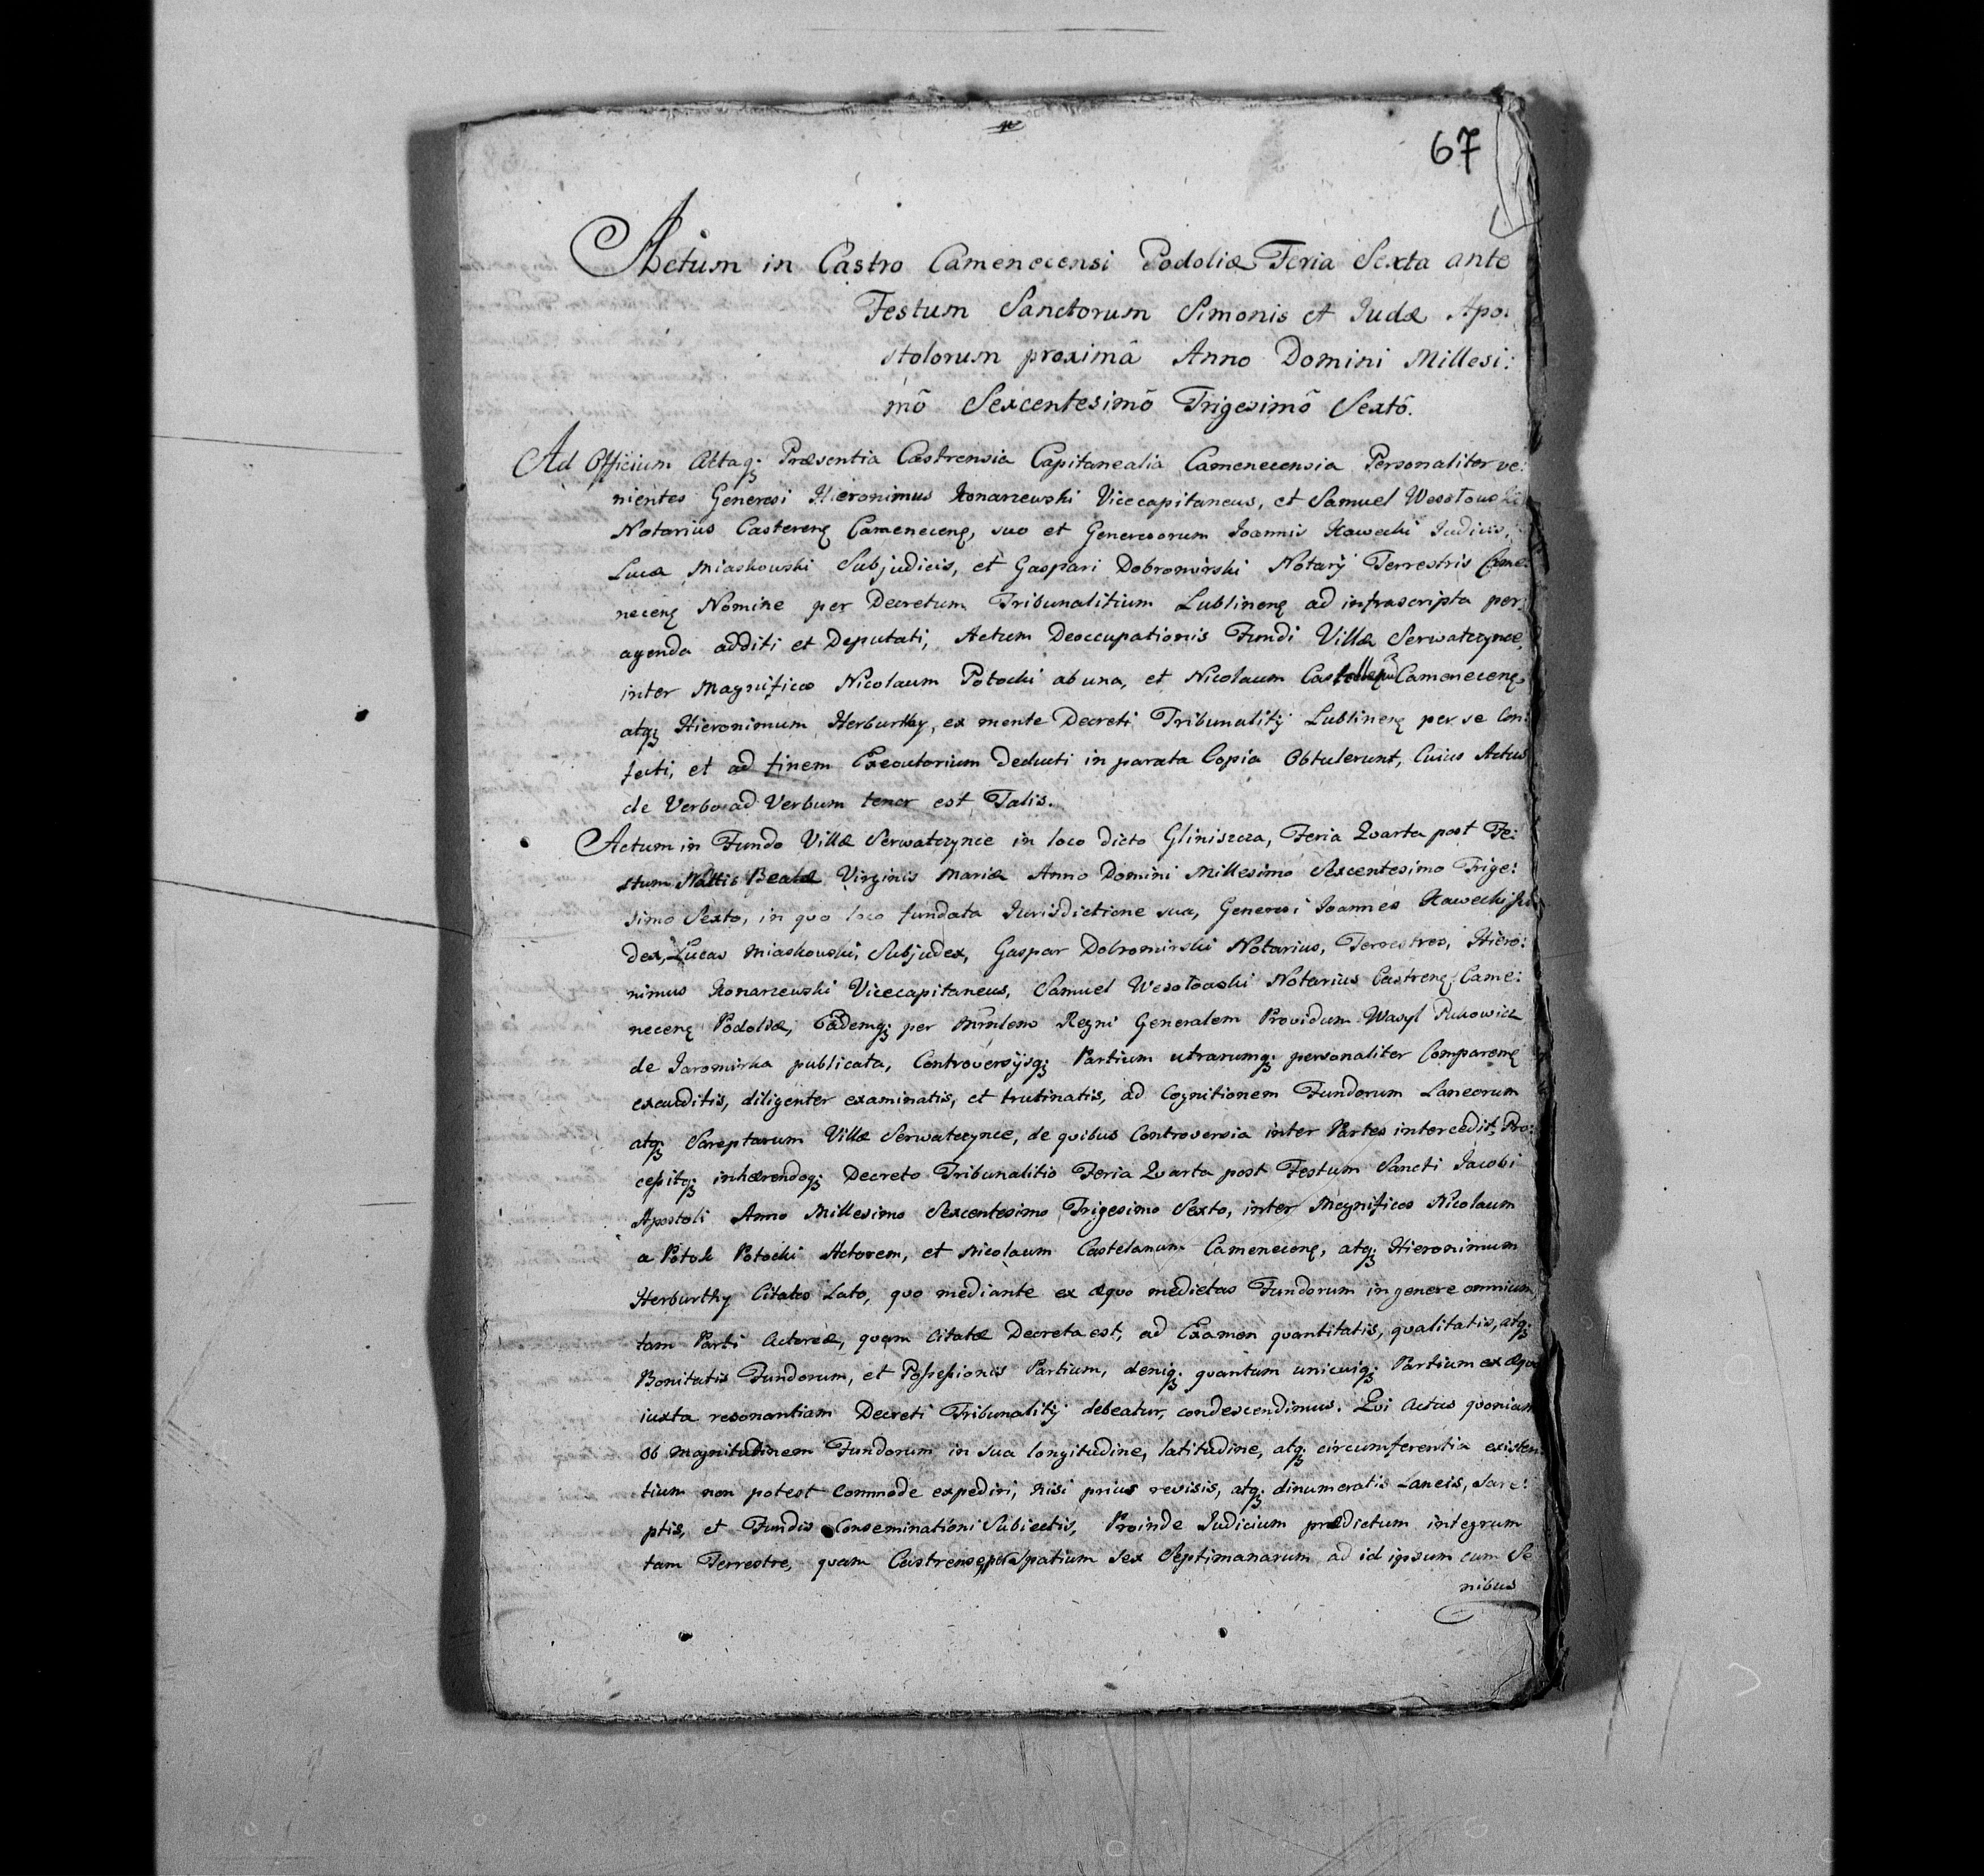 67
Actum in Castro Camenecensi Podoliæ Feria Sexta ante
Festum Sanctorum Simonis et Judæ Apo:
stolorum proximâ Anno Domini Millesi:
mô Sexcentesimô Trigesimô Sextô.
Ad Officium Actaq; Præsentia Castrensia Capitanealia Camenecensia Personaliter ve:
nientes Generosi Hieronimus Konarzewski Vicecapitaneus, et Samuel Wesołowski
Notarius Casterenę Camenecenę, suo et Generosorum Joannis Hawecki Judicis,
Lucæ Miaskowski Subjudicis, et Gaspari Dobromirski Notarÿ Terrestris Came:
necenę Nomine per Decretum Tribunalitium Lublinenę ad infrascripta per:
agenda additi et Deputati, Actum Deoccupationis Fundi Villæ Serwatzynce,
inter Magnificos Nicolaum Potocki ab una, et Nicolaum Camenecenę
atq; Hieronimum Herburthy, ex mente Decreti Tribunalitÿ Lublinenę per se Con:
fecti, et ad finem Executorium deducti in parata Copia Obtulerunt, Cuius Actus
de Verbo ad Verbum tenor est Talis.
Actum in Fundo Villæ Serwatzynce in loco dicto Gliniszcza, Feria Quarta post Fe:
stum Nattis Beatæ Virginis Mariæ Anno Domini Millesimo Sexcentesimo Trige:
simo Sexto, in quo loco fundata Jurisdictione sua, Generosi Joannes Hawecki Ju
dex, Lucas Miaskowski, Subjudex, Gaspar Dobromirski Notarius, Terrestres, Hiero:
nimus Konarzewski Vicecapitaneus, Samuel Wesołowski Notarius Castrenę, Came:
necenę Podoliæ, Eademq; per Regni Generalem Providum Wasyl
de Jaromirka publicata, Controversÿsq; Partium utrarumq; personaliter Comparenę
exauditis, diligenter examinatis, et trutinatis, ad Cognitionem Fundorum Laneorum
atq; Sareptarum Villæ Serwatzynce, de quibus Controversia inter Partes intercedit, Pro:
cessitq; inhærendoq; Decreto Tribunalitio Feria Quarta post Festum Sancti Jacobi
Apostoli Anno Millesimo Sexcentesimo Trigesimo Sexto, inter Magnificos Nicolaum
a Potok Potocki Actorem, et Nicolaum Castelanum Camenecenę, atq; Hieronimum
Herburthy Citatos Lato, quo mediante ex æquo medietas Fundorum in genere omnium
tam Parti Actoreæ, quam Citatæ Decreta est, ad Examen quantitatis, qualitatis, atq;
Bonitatis Fundorum, et Possessionis Partium, deniq; quantum unicuiq; Partium ex æquo
iuxta resonantiam Decreti Tribunalitÿ debeatur, condescendimus. Qui Actus quoniam
ob magnitudinem Fundorum in sua longitudine, latitudine, atq; circumferentia existen
tium non potest Commode expediri, nisi prius revisis, atq; dinumeratis Laneis, Sare:
ptis, et Fundis Conseminationi Subiectis, Proinde Judicium prædictum integrum
tam Terrestre, quam Castrense, per Spatium sex Septimanarum ad id ipsum cum Se
nibus